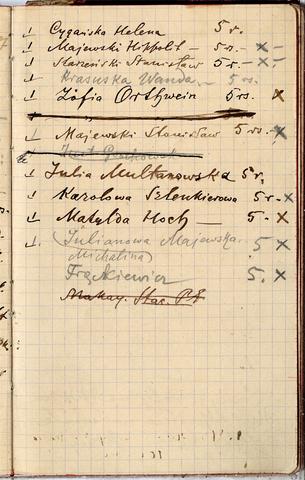 Cygańska Helena 5 r.
Majewski Hipolit – 5 r. – x –
Starzeński Stanisław 5 rs. – x –
Krasuska Wanda – 5 rs.
Zofia Orthwein 5 rs. x
Majewski Stanisław 5 rs. – x
Julia Multanowska 5 r.
Karolowa Szlenkierowa 5 r. – x
Matylda Hoch – 5. x
(Julianowa Majewska 5 x
Michalina)
Frąckiewicz 5. x